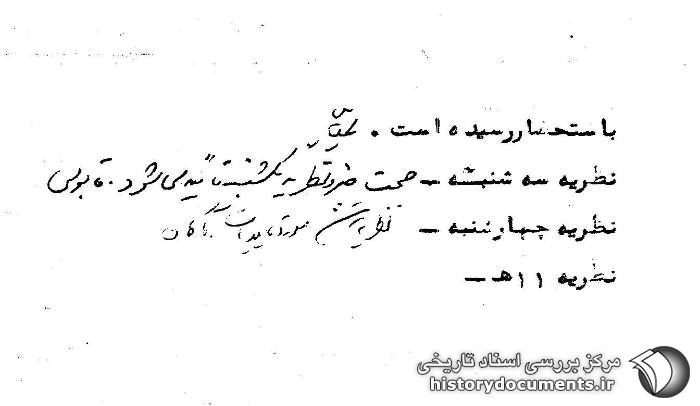 باستحضار رسیده است .
نظریه سه شنبه - صحت خبر و نظریه یکشنبه تأیید می شود . قابوس
نظریه چهارشنبه - نظریه سه شنبه مورد تایید است
نظریه ۱۱هـ -
مرکز بررسی اسناد تاریخی
historydocuments.ir